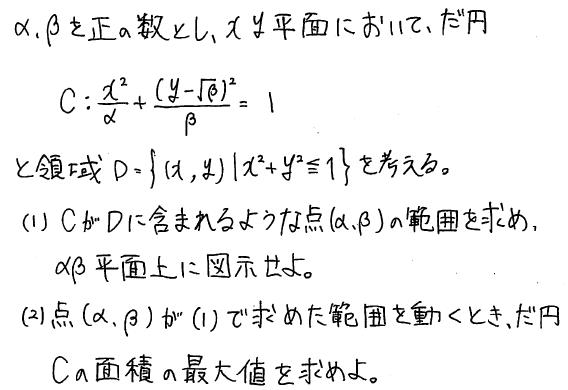 α,βを正の数とし、xy平面において、だ円
C: x²/α + (y-√β)²/β = 1
と領域 D={(x,y)|x²+y²≦1}を考える。
(1) CがDに含まれるような点(α,β)の範囲を求め、
αβ平面上に図示せよ。
(2) 点(α,β)が(1)で求めた範囲を動くとき、だ円
Cの面積の最大値を求めよ。